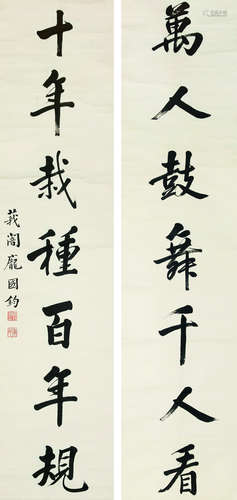 萬人鼓舞千人看
十年栽種百年規
莪閣龐國鈞